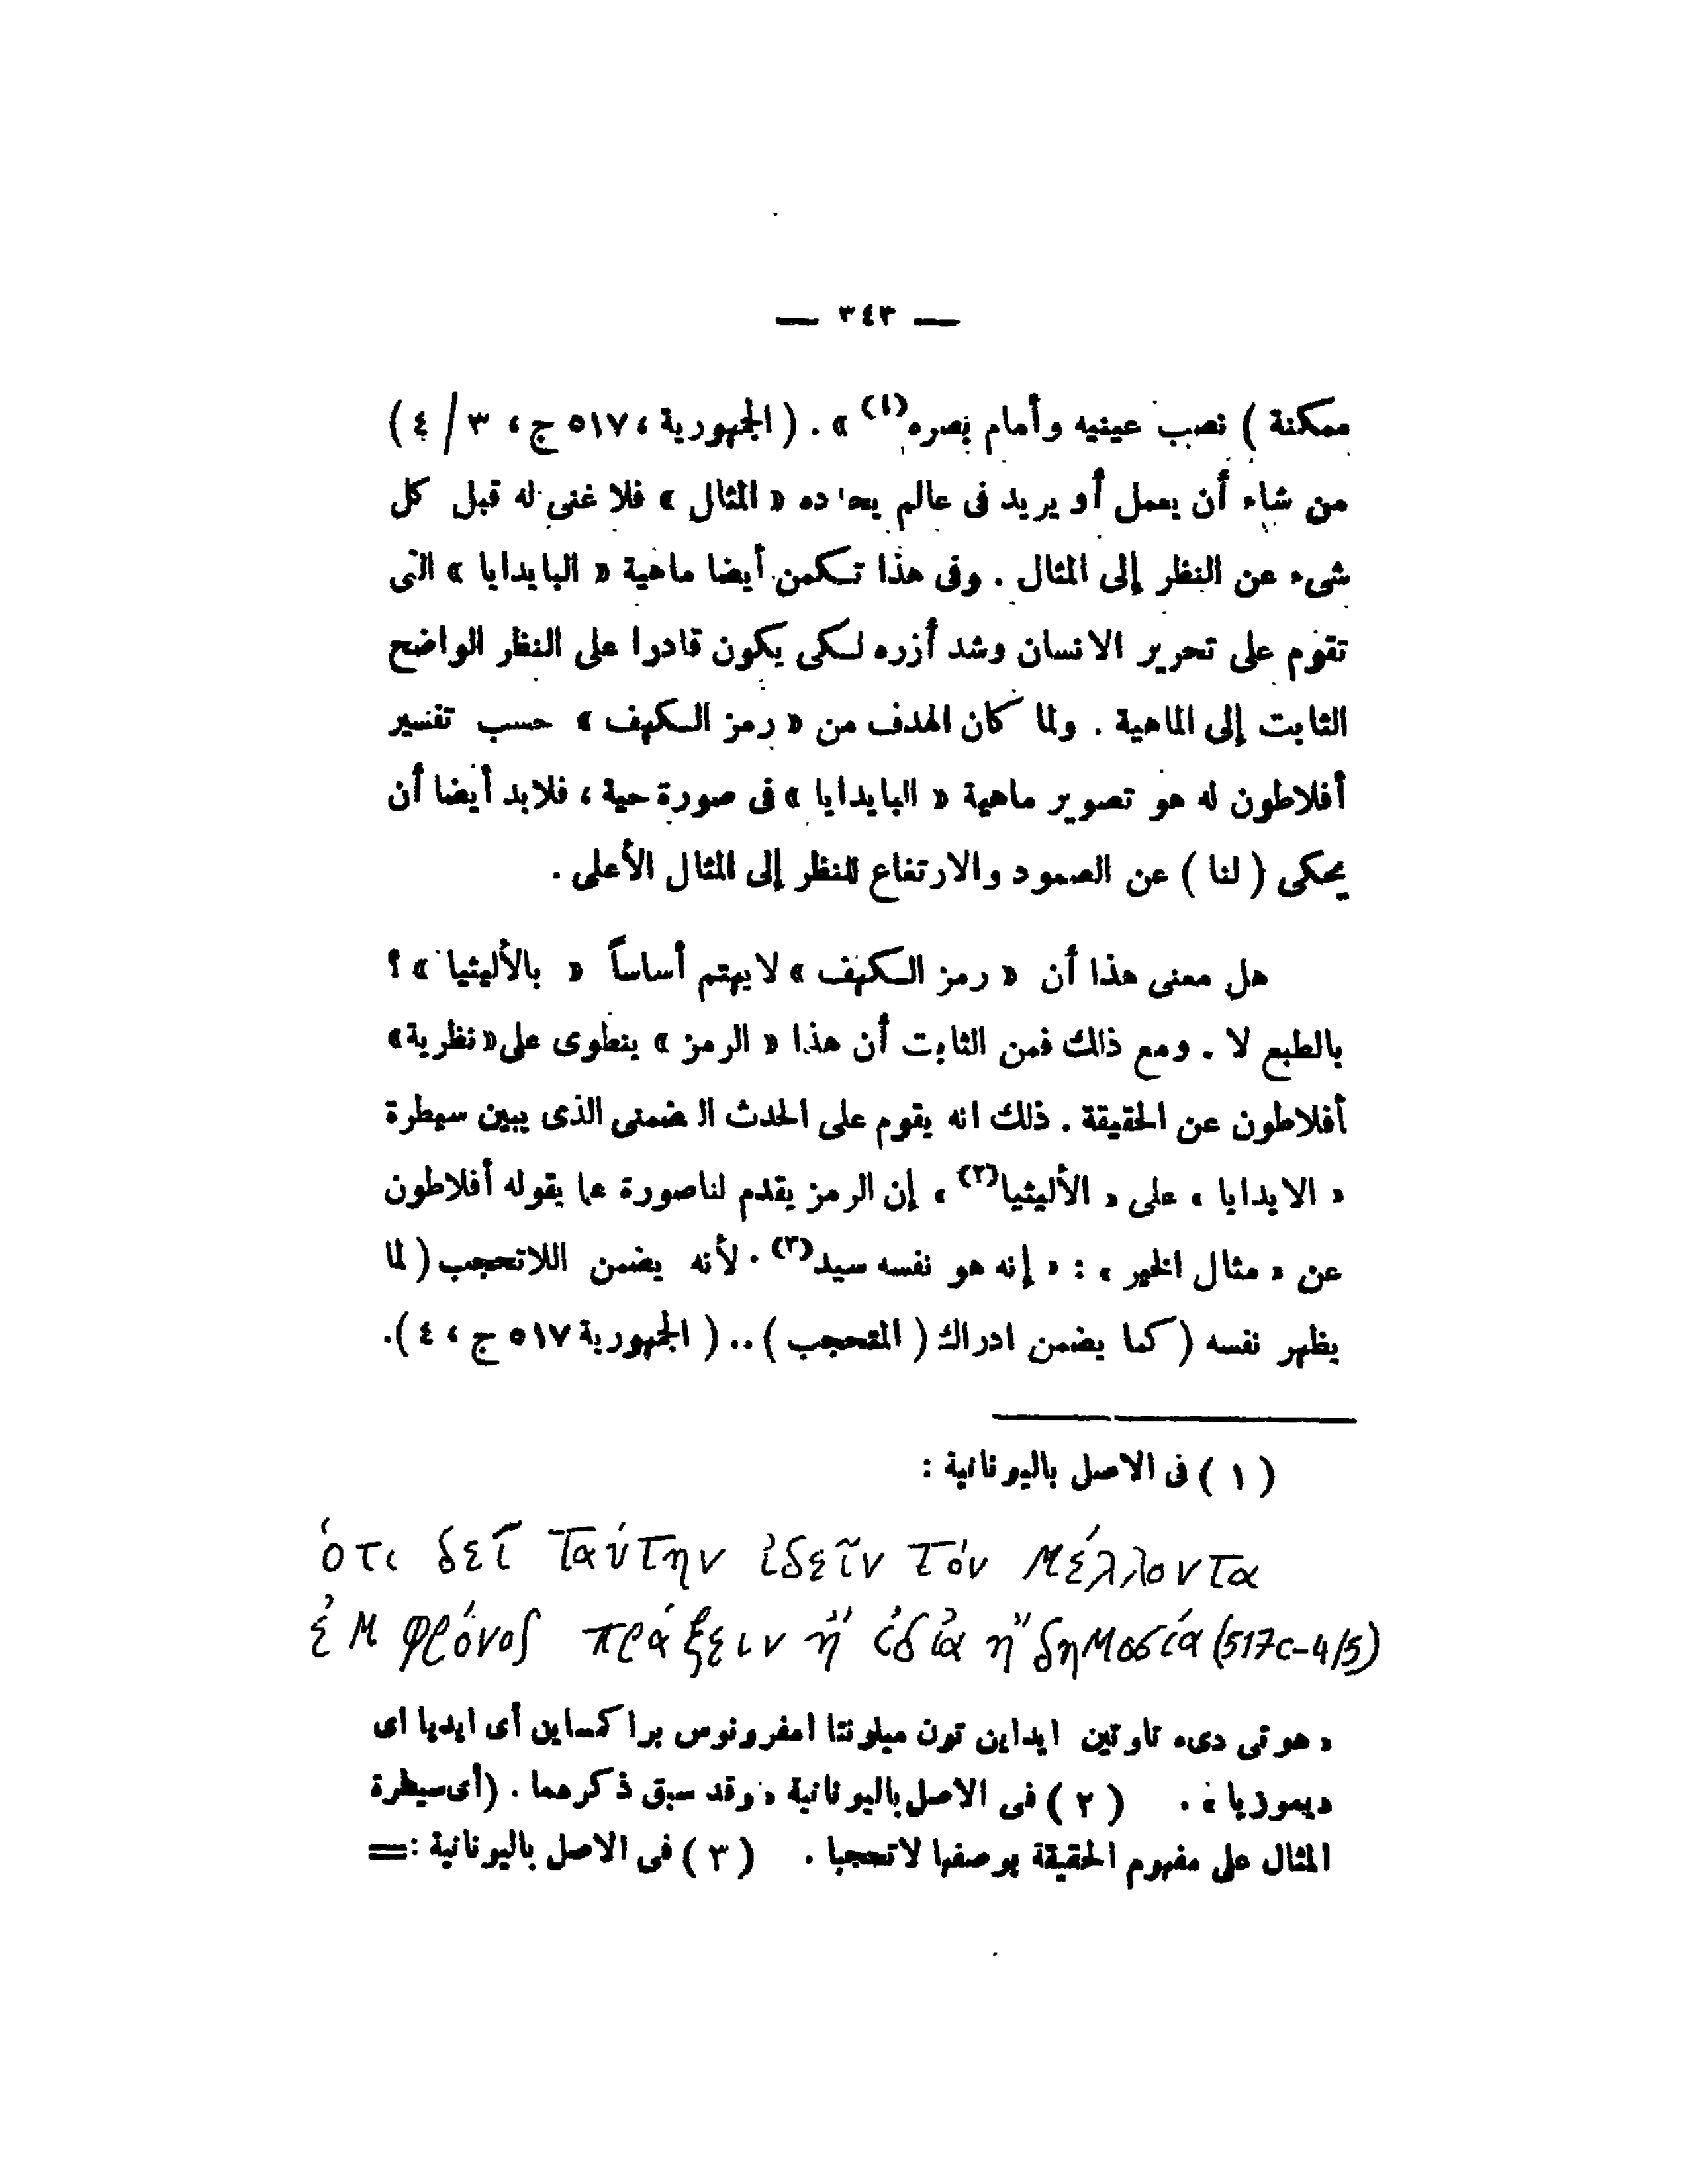 — ٣٤٣ —
ممكنة ) نصب عينيه وأمام بصره(١) » . ( الجمهورية ، ٥١٧ ج ، ٣ / ٤ )
من شاء أن يعمل أو يريد فى عالم يحدده « المثال » فلا غنى له قبل كل
شىء عن النظر إلى المثال . وفى هذا تكمن أيضا ماهية « البايدايا » التى
تقوم على تحرير الانسان وشد أزره لكى يكون قادرا على النظر الواضح
الثابت إلى الماهية . ولما كان الهدف من « رمز الكهف » حسب تفسير
أفلاطون له هو تصوير ماهية « البايدايا » فى صورة حية ، فلابد أيضا أن
يحكى ( لنا ) عن الصعود والارتفاع للنظر إلى المثال الأعلى .
هل معنى هذا أن « رمز الكهف » لايهتم أساساً « بالأليثيا » ؟
بالطبع لا . ومع ذالك فمن الثابت أن هذا « الرمز » ينطوى على « نظرية »
أفلاطون عن الحقيقة . ذلك انه يقوم على الحدث الضمنى الذى يبين سيطرة
« الايدايا » على « الأليثيا(٢) » إن الرمز يقدم لناصورة عما يقوله أفلاطون
عن « مثال الخير » : « إنه هو نفسه سيد(٣) . لأنه يضمن اللاتحجب ( لما
يظهر نفسه ( كما يضمن ادراك ( المتحجب ) .. ( الجمهورية ٥١٧ ج ، ٤ ).
( ١ ) فى الاصل باليونانية :
ὁτι δεῖ ταύτην ἰδεῖν τόν μέλλοντα
ἐμφρόνος πράξειν ἤ ἰδίᾳ ἤ δημοσίᾳ (517c-4/5)
« هوتى دىء تاوتين ايداين تون ميلونتا امفرونوس براكساين أى ايديا اى
ديموزيا » . ( ٢ ) فى الاصل باليونانية ، وقد سبق ذكرهما . (أى سيطرة
المثال على مفهوم الحقيقة بوصفها لاتحجبا . ( ٣ ) فى الاصل باليونانية : =